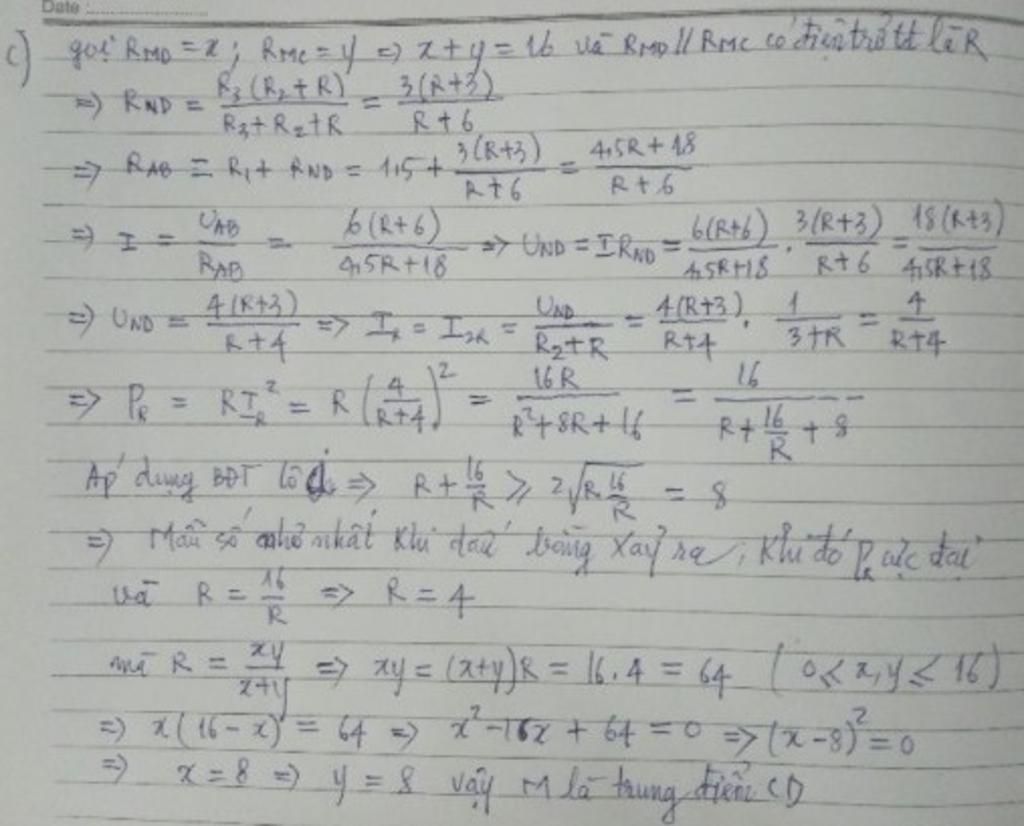 Date :
c) gọi R_MD = x ; R_MC = y => x + y = 16 và R_MD // R_MC có điện trở tđ là R
=> R_ND = R_3(R_2 + R) / (R_3 + R_2 + R) = 3(R+3) / (R + 6)
=> R_AB = R_1 + R_ND = 1,5 + 3(R+3) / (R + 6) = (4,5R + 18) / (R + 6)
=> I = U_AB / R_AB = 6(R+6) / (4,5R + 18) => U_ND = I R_ND = 6(R+6) / (4,5R+18) . 3(R+3) / (R+6) = 18(R+3) / (4,5R+18)
=> U_ND = 4(R+3) / (R+4) => I_R = I_2R = U_ND / (R_2 + R) = 4(R+3) / (R+4) . 1 / (3+R) = 4 / (R+4)
=> P_R = R I_R^2 = R (4 / (R+4))^2 = 16R / (R^2 + 8R + 16) = 16 / (R + 16/R + 8)
Áp dụng BĐT cô => R + 16/R ⩾ 2√(R 16/R) = 8
=> Mẫu số nhỏ nhất khi dấu bằng xảy ra ; khi đó P_R cực đại
và R = 16/R => R = 4
mà R = xy / (x+y) => xy = (x+y)R = 16.4 = 64 (0 ⩽ x, y ⩽ 16)
=> x(16 - x) = 64 => x^2 - 16x + 64 = 0 => (x - 8)^2 = 0
=> x = 8 => y = 8 vậy M là trung điểm CD